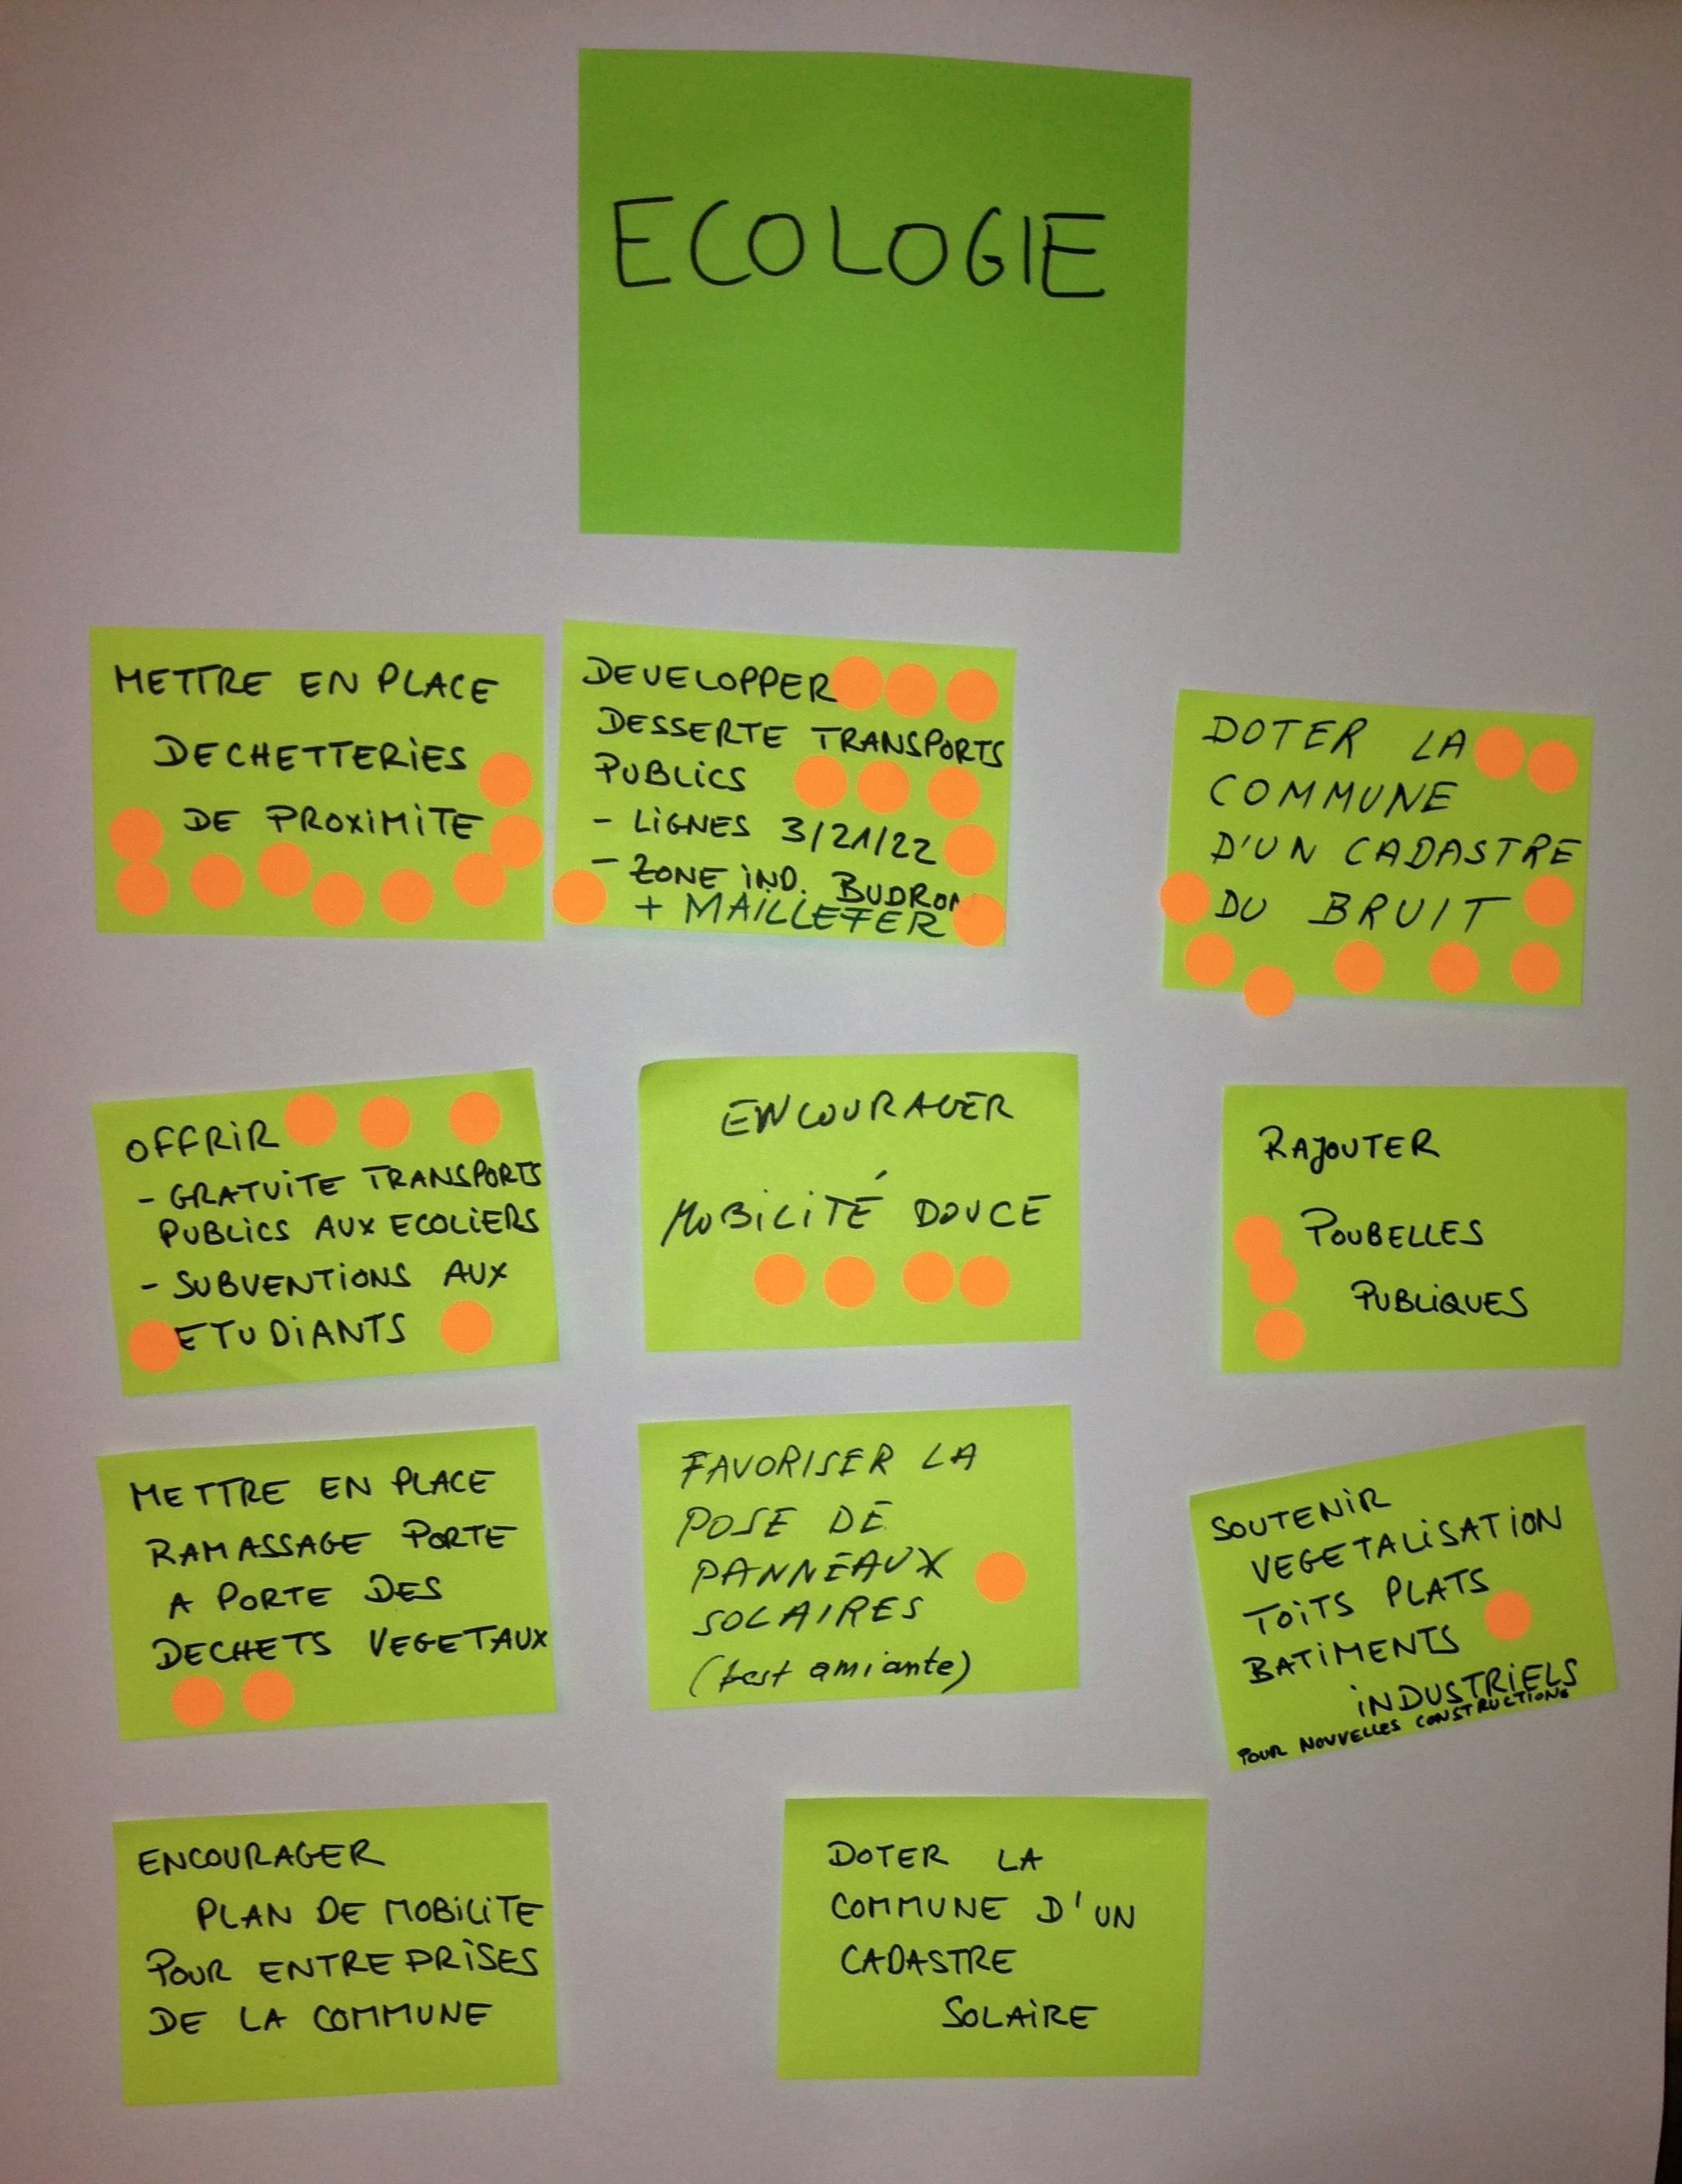 ECOLOGIE
METTRE EN PLACE
DECHETTERIES
DE PROXIMITE
DEVELOPPER
DESSERTE TRANSPORTS
PUBLICS
- LIGNES 3/21/22
- ZONE IND. BUDRON
+ MAILLEFER
DOTER LA
COMMUNE
D'UN CADASTRE
DU BRUIT
OFFRIR
- GRATUITE TRANSPORTS
PUBLICS AUX ECOLIERS
- SUBVENTIONS AUX
ETUDIANTS
ENCOURAGER
MOBILITÉ DOUCE
RAJOUTER
POUBELLES
PUBLIQUES
METTRE EN PLACE
RAMASSAGE PORTE
A PORTE DES
DECHETS VEGETAUX
FAVORISER LA
POSE DE
PANNEAUX
SOLAIRES
(test amiante)
SOUTENIR
VEGETALISATION
TOITS PLATS
BATIMENTS
INDUSTRIELS
POUR NOUVELLES CONSTRUCTIONS
ENCOURAGER
PLAN DE MOBILITE
POUR ENTREPRISES
DE LA COMMUNE
DOTER LA
COMMUNE D'UN
CADASTRE
SOLAIRE